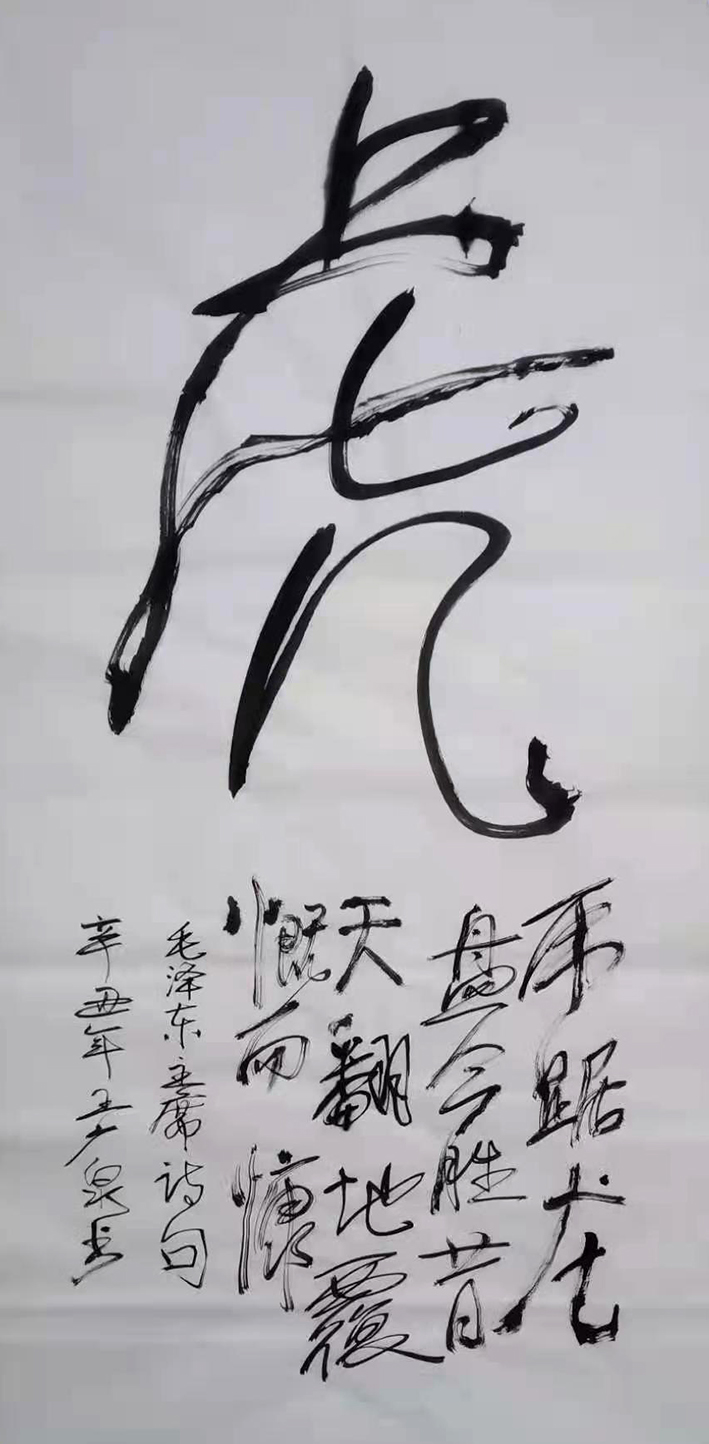 虎
虎踞龙
盘今胜昔
天翻地覆
慨而慷
毛泽东主席诗句
辛丑年王广泉书